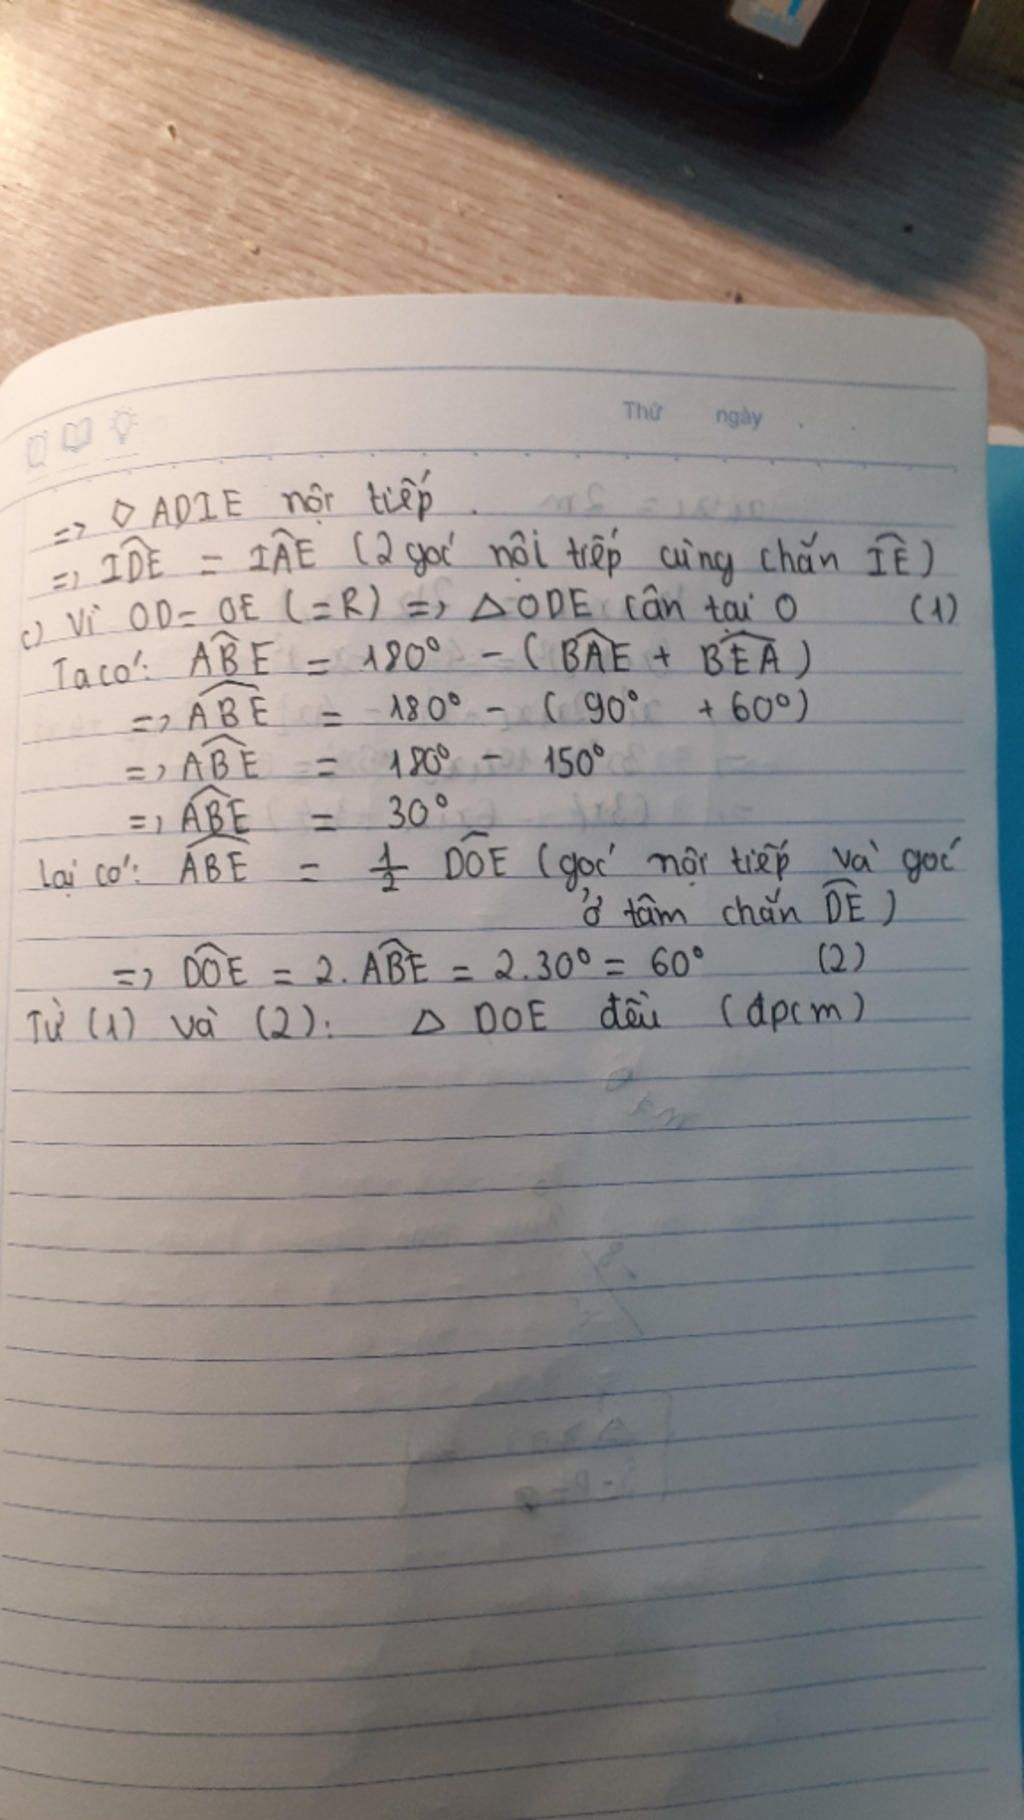 Thứ ngày . .
=> ◇ ADIE nội tiếp.
=> IDE = IAE (2 góc nội tiếp cùng chắn IE)
c) Vì OD = OE (=R) => △ ODE cân tại O (1)
Ta có: ABE = 180° - (BAE + BEA)
=> ABE = 180° - (90° + 60°)
=> ABE = 180° - 150°
=> ABE = 30°
Lại có: ABE = 1/2 DOE (góc nội tiếp và góc
ở tâm chắn DE)
=> DOE = 2. ABE = 2.30° = 60° (2)
Từ (1) và (2): △ DOE đều (đpcm)